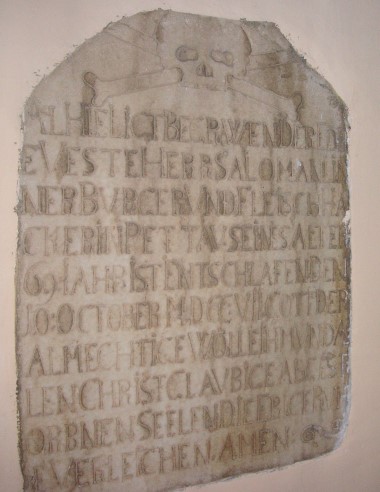 ALHIE LIGT BEGRAWEN DER ED
EVESTE HERR SALOMAN
NER BVRGER VND FLEISCHHA
CKHER IN PETTAV SEINS
69 IAHR IST ENTSCHLAFEN DEN
10: OCTOBER MDCCVII GOTT DER
ALMECHTIGE WOLLE IHM VND A
LEN CHRISTGLAVBIGE ABGEST
ORBNEN SEELEN DIE
VERLEICHEN, AMEN: